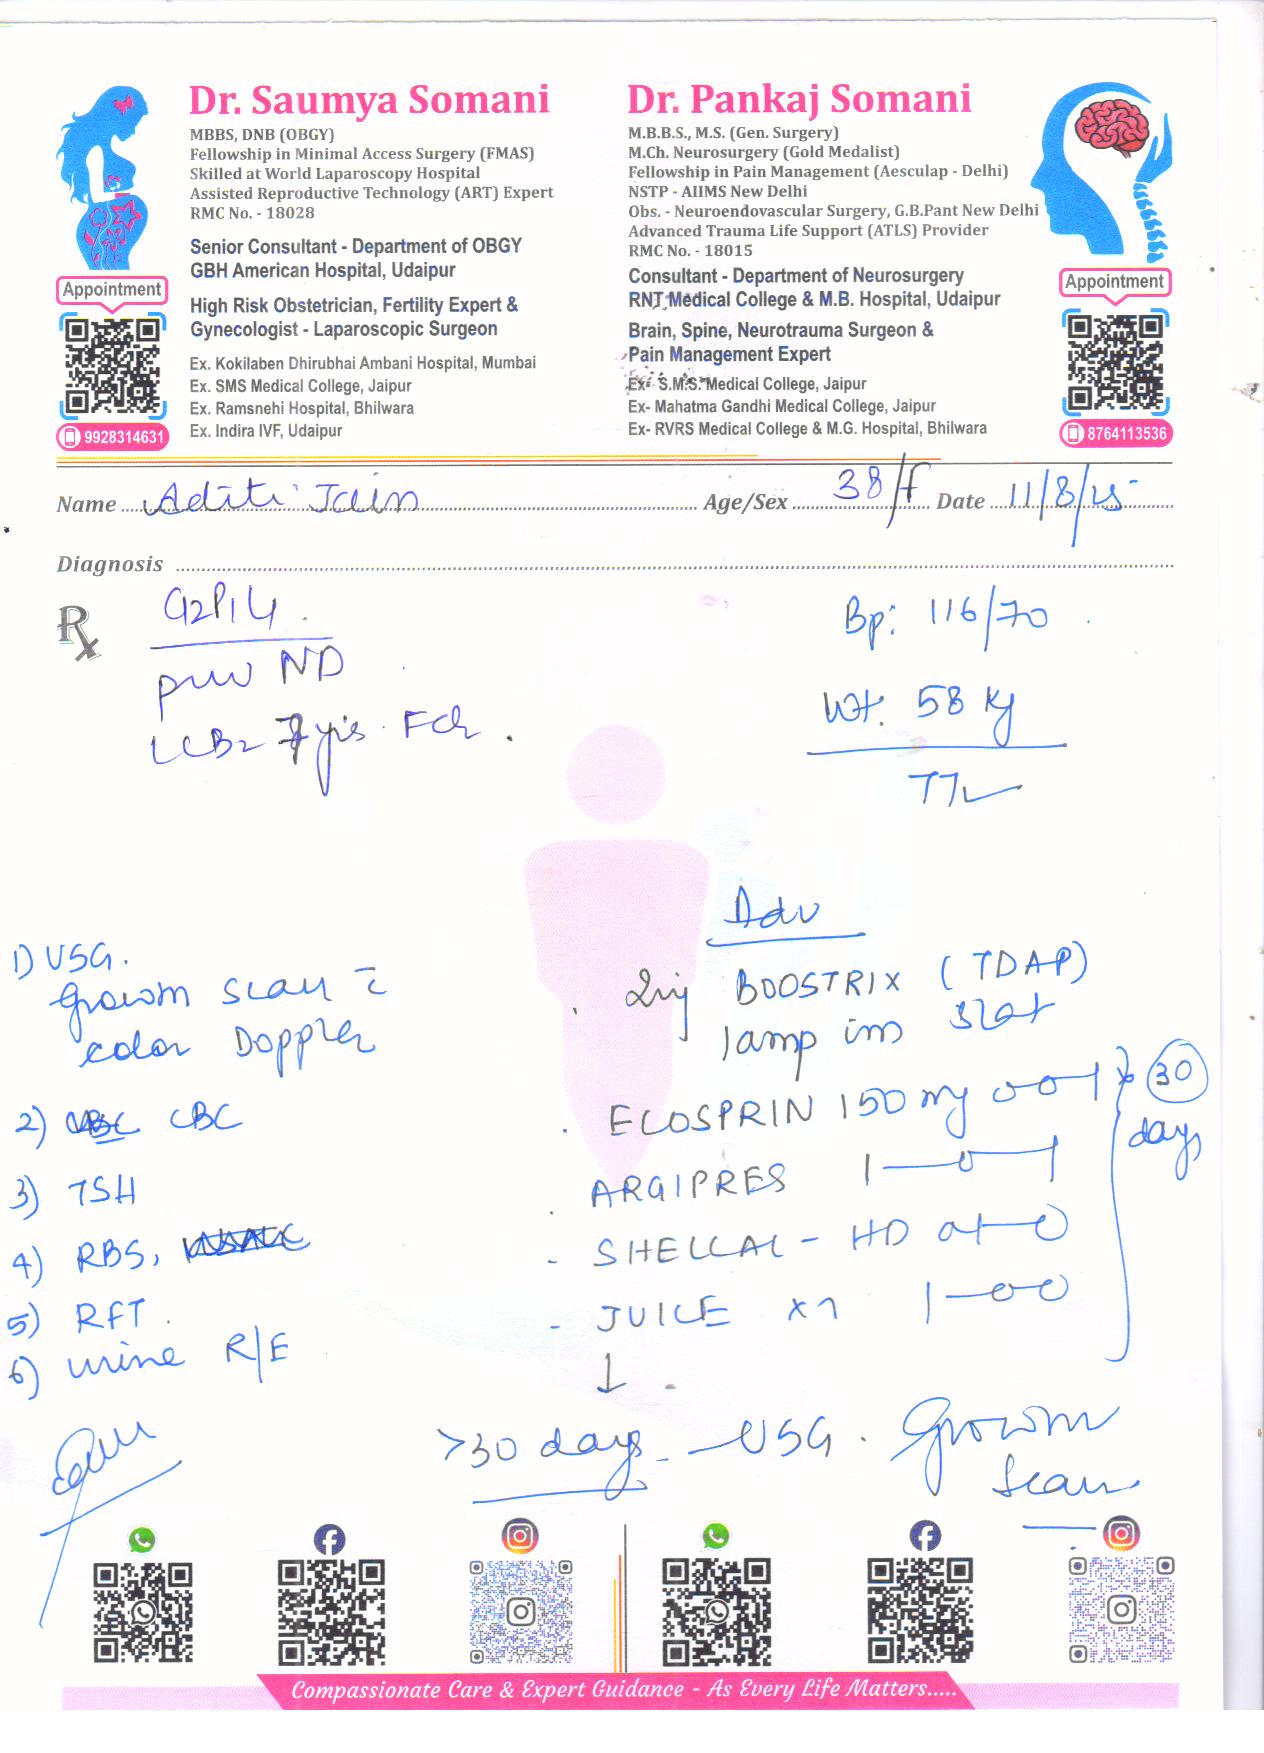 Dr. Saumya Somani
MBBS, DNB (OBGY)
Fellowship in Minimal Access Surgery (FMAS)
Skilled at World Laparoscopy Hospital
Assisted Reproductive Technology (ART) Expert
RMC No. - 18028
Senior Consultant - Department of OBGY
GBH American Hospital, Udaipur
High Risk Obstetrician, Fertility Expert &
Gynecologist - Laparoscopic Surgeon
Ex. Kokilaben Dhirubhai Ambani Hospital, Mumbai
Ex. SMS Medical College, Jaipur
Ex. Ramsnehi Hospital, Bhilwara
Ex. Indira IVF, Udaipur
Appointment
9928314631
Dr. Pankaj Somani
M.B.B.S., M.S. (Gen. Surgery)
M.Ch. Neurosurgery (Gold Medalist)
Fellowship in Pain Management (Aesculap - Delhi)
NSTP - AIIMS New Delhi
Obs. - Neuroendovascular Surgery, G.B.Pant New Delhi
Advanced Trauma Life Support (ATLS) Provider
RMC No. - 18015
Consultant - Department of Neurosurgery
RNT Medical College & M.B. Hospital, Udaipur
Brain, Spine, Neurotrauma Surgeon &
Pain Management Expert
Ex- S.M.S. Medical College, Jaipur
Ex- Mahatma Gandhi Medical College, Jaipur
Ex- RVRS Medical College & M.G. Hospital, Bhilwara
Appointment
8764113536
Name Aditi Jain Age/Sex 38/F Date 11/8/25
Diagnosis
Rx G2P1L1
prev ND
LCB 7 yrs. Fch.
Bp: 116/70
Wt. 58 kg
Adv
1) USG.
Growth scan c̄
color Doppler
2) CBC
3) TSH
4) RBS,
5) RFT.
6) urine R/E
. Inj BOOSTRIX (TDAP)
1amp im stat
. ECOSPRIN 150 mg 0-0-1 x 30 days
. ARGIPRES 1-0-1
- SHELCAL - HD
- JUICE 1-0-0
↓
>30 days - USG. Growth
scan
Compassionate Care & Expert Guidance - As Every Life Matters.....